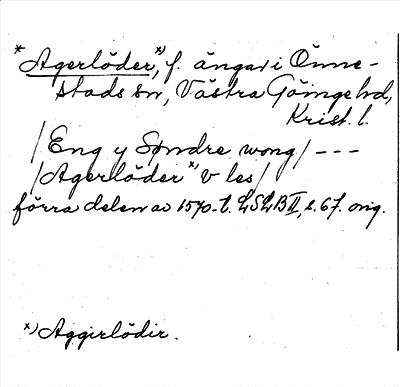 *Agerlöder,ˣ⁾ f. ängar i Önne-
stads sn, Västra Göinge hd,
Krist. l.
/Eng y Søndre wong/ ---
/Agerlöder ˣ⁾ v les/
förra delen av 1570-t. LSLB II, s. 67. orig.
ˣ⁾ Aggirlödir.